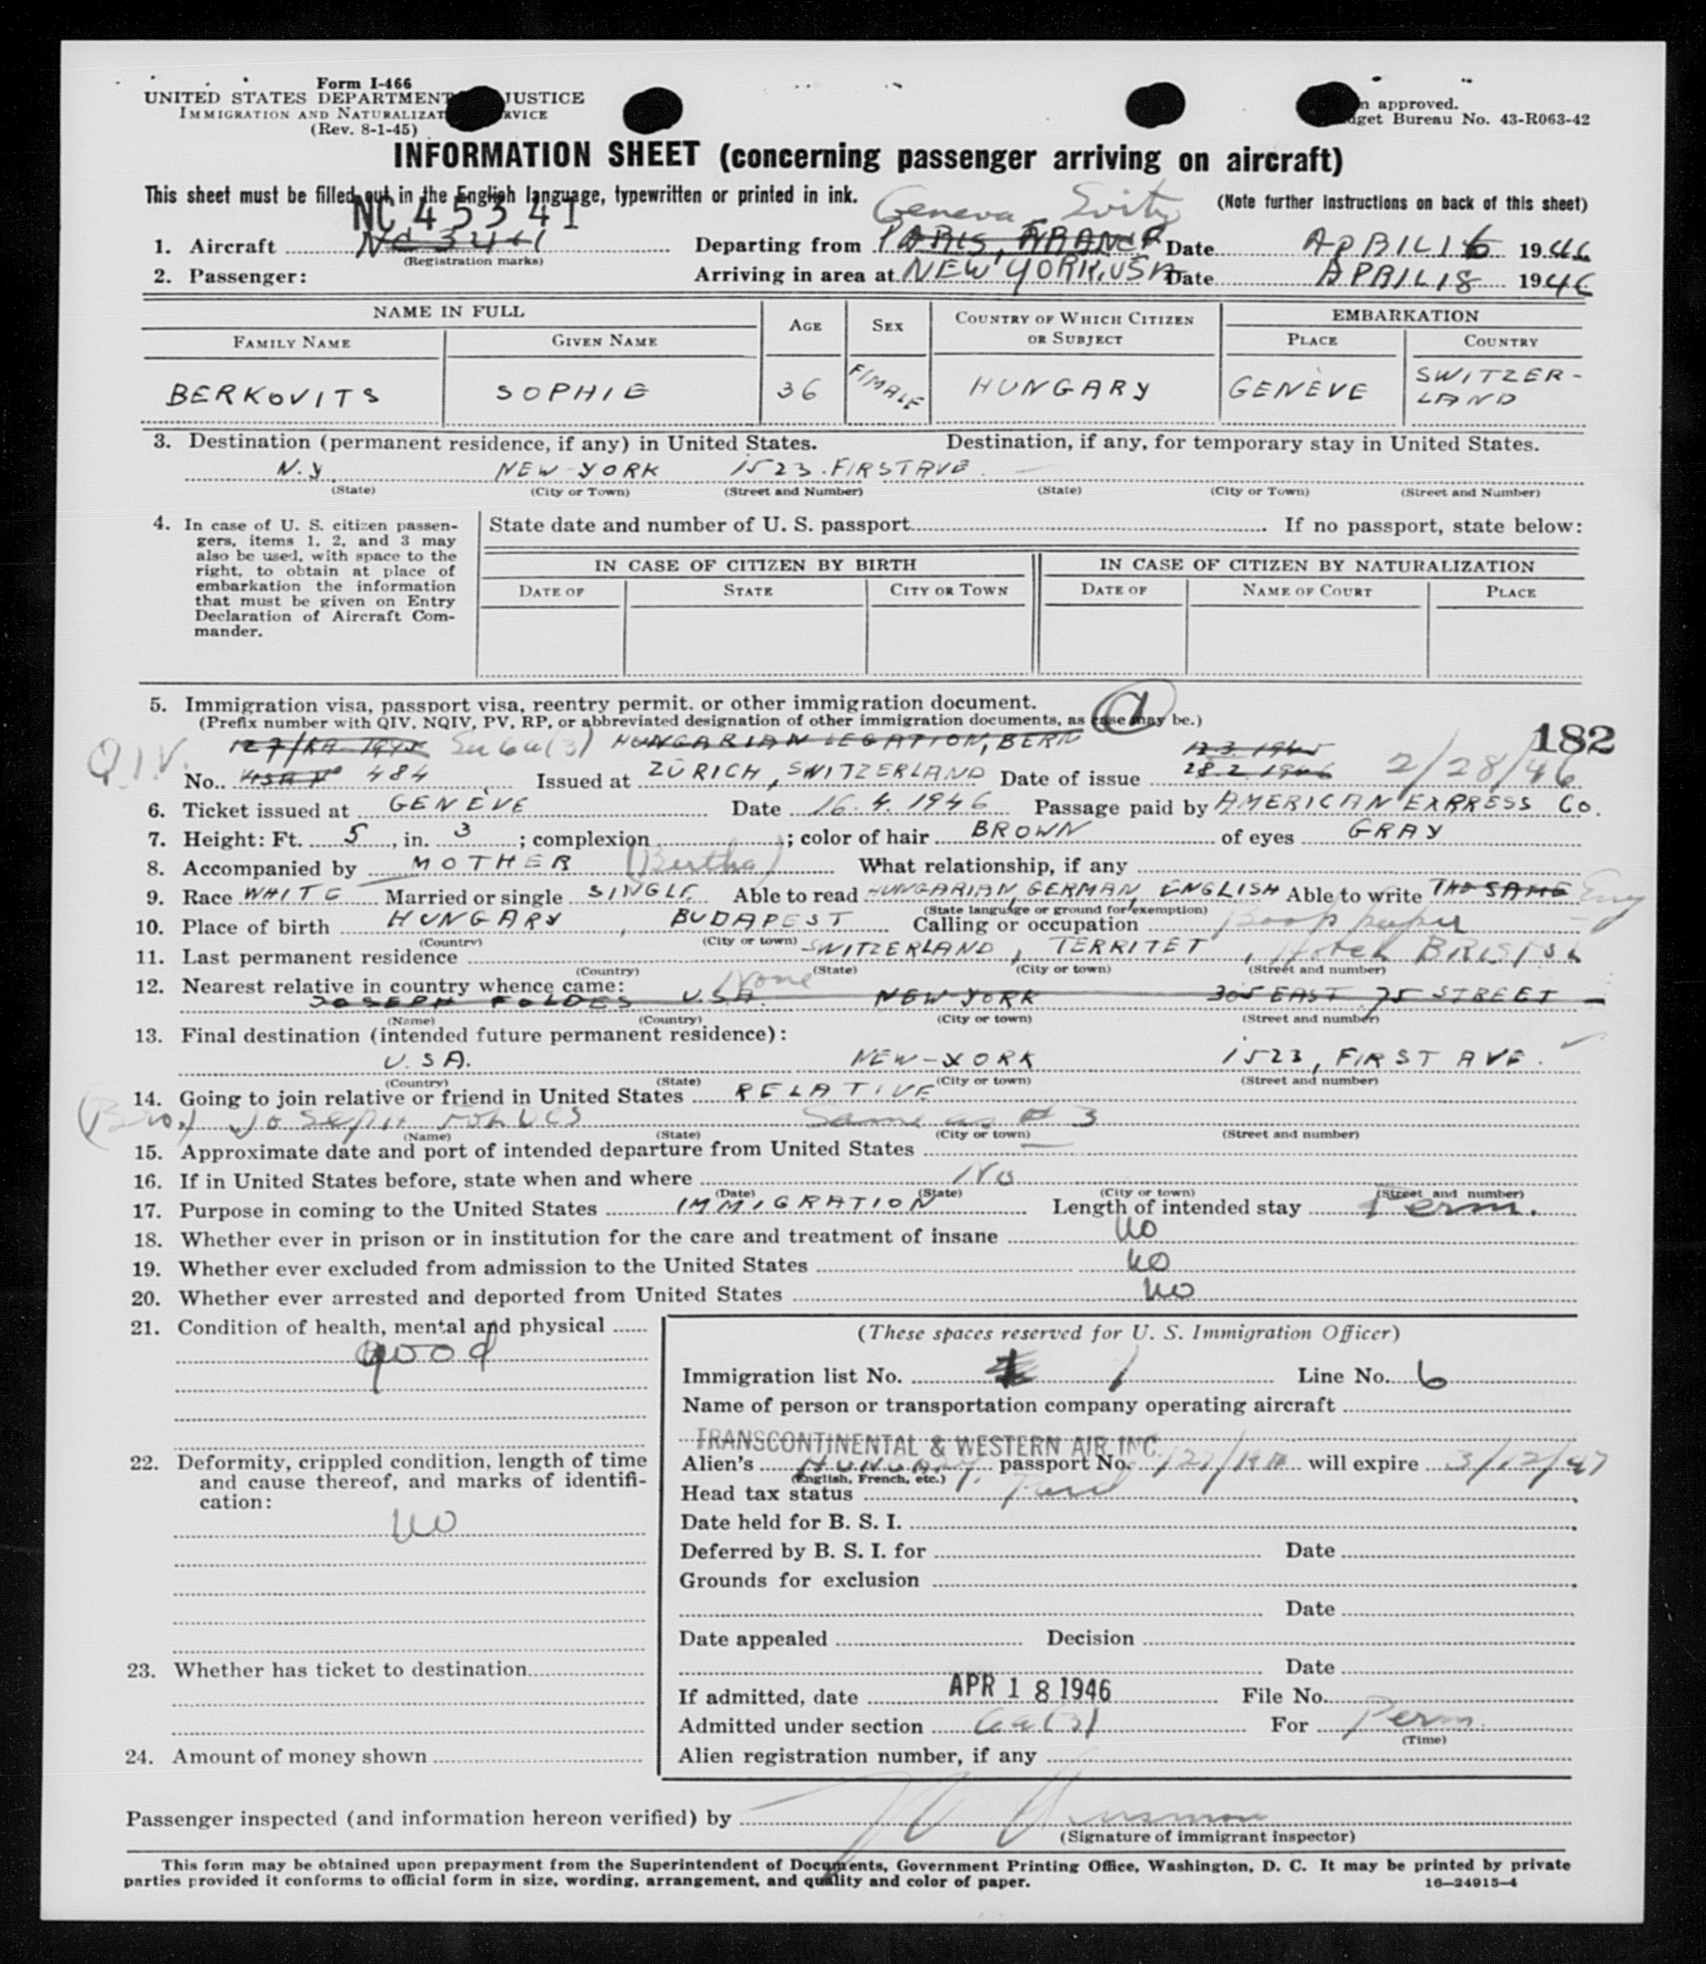 Form I-466
UNITED STATES DEPARTMENT JUSTICE
IMMIGRATION AND NATURALIZAT RVICE
(Rev. 8-1-45)
n approved.
get Bureau No. 43-R063-42
INFORMATION SHEET (concerning passenger arriving on aircraft)
This sheet must be filled out in the English language, typewritten or printed in ink.
(Note further instructions on back of this sheet)
NC 45341 Geneva
1. Aircraft NC 3441 Departing from PARIS, FRANCE Date APRIL 16 1946
(Registration marks)
2. Passenger: Arriving in area at NEW YORK, USA Date APRIL 18 1946
NAME IN FULL AGE SEX COUNTRY OF WHICH CITIZEN OR SUBJECT EMBARKATION
FAMILY NAME GIVEN NAME PLACE COUNTRY
BERKOVITS SOPHIE 36 FIMALE HUNGARY GENÈVE SWITZER-
LAND
3. Destination (permanent residence, if any) in United States. Destination, if any, for temporary stay in United States.
N.Y. NEW-YORK 1523. FIRST AVE. —
(State) (City or Town) (Street and Number) (State) (City or Town) (Street and Number)
4. In case of U. S. citizen passen-
gers, items 1, 2, and 3 may
also be used, with space to the
right, to obtain at place of
embarkation the information
that must be given on Entry
Declaration of Aircraft Com-
mander.
State date and number of U. S. passport If no passport, state below:
IN CASE OF CITIZEN BY BIRTH IN CASE OF CITIZEN BY NATURALIZATION
DATE OF STATE CITY OR TOWN DATE OF NAME OF COURT PLACE
5. Immigration visa, passport visa, reentry permit, or other immigration document.
(Prefix number with QIV, NQIV, PV, RP, or abbreviated designation of other immigration documents, as case may be.)
182
Q.I.V. 127/KA 1945 Sec 6a(3) HUNGARIAN LEGATION, BERN 12.3.1945
No. 484 Issued at ZÜRICH, SWITZERLAND Date of issue 28.2.1946 2/28/46
6. Ticket issued at GENÈVE Date 16.4.1946 Passage paid by AMERICAN EXPRESS Co.
7. Height: Ft. 5, in. 3; complexion ; color of hair BROWN of eyes GRAY
8. Accompanied by MOTHER (Bertha) What relationship, if any
9. Race WHITE Married or single SINGLE Able to read HUNGARIAN, GERMAN, ENGLISH Able to write THE SAME Eng
(State language or ground for exemption)
10. Place of birth HUNGARY, BUDAPEST Calling or occupation
(Country) (City or town)
11. Last permanent residence SWITZERLAND, TERRITET, Hotel BRISTOL
(Country) (State) (City or town) (Street and number)
12. Nearest relative in country whence came: None
JOSEPH FOLDES U.S.A. NEW-YORK 305 EAST 75 STREET
(Name) (Country) (City or town) (Street and number)
13. Final destination (intended future permanent residence):
U.S.A. NEW-YORK 1523, FIRST AVE.
(Country) (State) (City or town) (Street and number)
14. Going to join relative or friend in United States RELATIVE
(Bro.) Joseph FOLDES Same as # 3
(Name) (State) (City or town) (Street and number)
15. Approximate date and port of intended departure from United States —
16. If in United States before, state when and where No
(Date) (State) (City or town) (Street and number)
17. Purpose in coming to the United States IMMIGRATION Length of intended stay Perm.
18. Whether ever in prison or in institution for the care and treatment of insane no
19. Whether ever excluded from admission to the United States no
20. Whether ever arrested and deported from United States no
21. Condition of health, mental and physical
good
22. Deformity, crippled condition, length of time
and cause thereof, and marks of identifi-
cation:
no
23. Whether has ticket to destination
24. Amount of money shown
(These spaces reserved for U. S. Immigration Officer)
Immigration list No. 1 Line No. 6
Name of person or transportation company operating aircraft
TRANSCONTINENTAL & WESTERN AIR, INC.
Alien's HUNGARY passport No. 127/KA will expire 3/12/47
(English, French, etc.)
Head tax status Paid
Date held for B. S. I.
Deferred by B. S. I. for Date
Grounds for exclusion
Date
Date appealed Decision
Date
If admitted, date APR 18 1946 File No.
Admitted under section 6a(3) For Perm.
(Time)
Alien registration number, if any
Passenger inspected (and information hereon verified) by
(Signature of immigrant inspector)
This form may be obtained upon prepayment from the Superintendent of Documents, Government Printing Office, Washington, D. C. It may be printed by private
parties provided it conforms to official form in size, wording, arrangement, and quality and color of paper.
16—24915-4